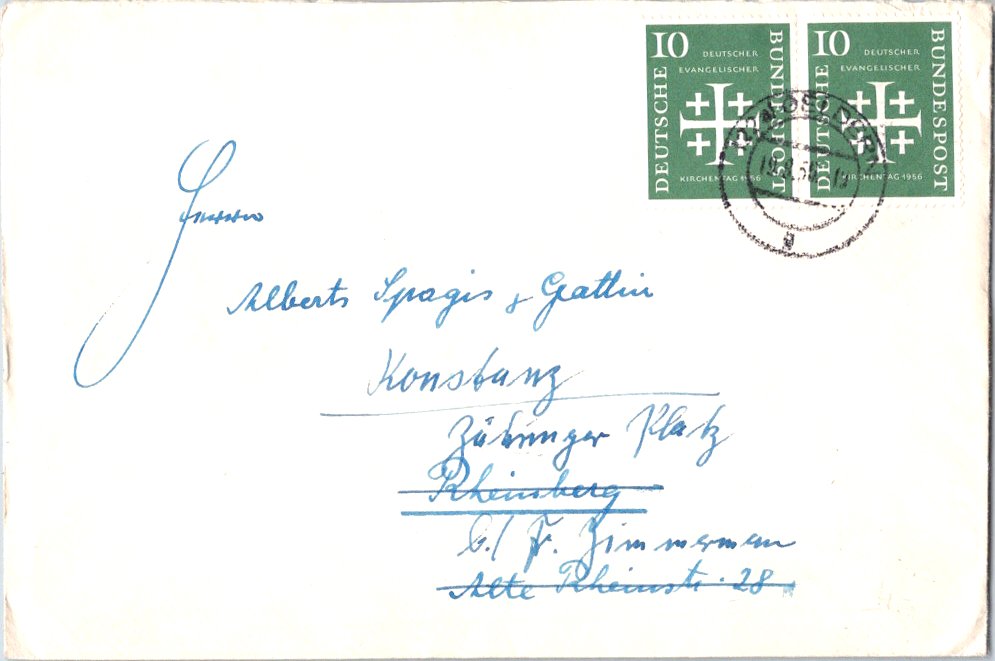 10 DEUTSCHER
EVANGELISCHER
DEUTSCHE
BUNDESPOST
KIRCHENTAG 1956
10 DEUTSCHER
EVANGELISCHER
DEUTSCHE
BUNDESPOST
KIRCHENTAG 1956
(22a) GELDERN
a
Herrn
Alberts Spagis & Gattin
Konstanz
Zähringer Platz
Rheinberg
b./ F. Zimmerman
Alte Rheinstr. 28